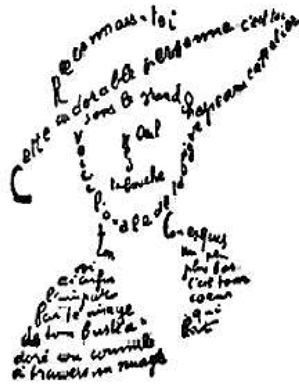 Reconnais-toi
Cette adorable personne c'est toi
sous le grand chapeau canotier
œil
la bouche
Voici l'ovale de ta figure
Ton cou exquis
Voi
ci enfin
l'imparfai
te image
de ton buste a
doré vu comme
à travers un nuage
Un peu
plus bas
c'est ton
cœur
qui
bat